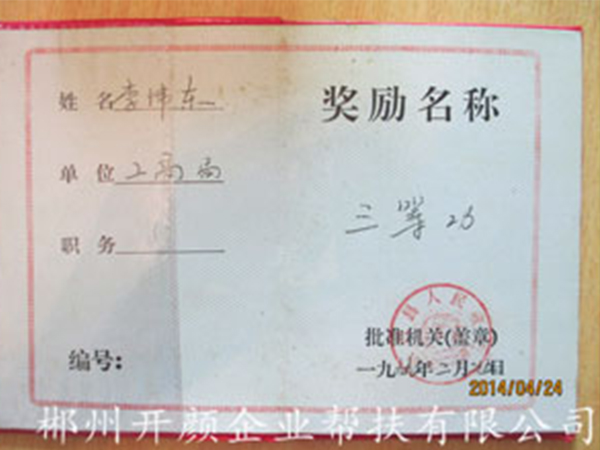 姓名 李伟东
单位 工商局
职务
编号:
奖励名称
三等功
县人民
批准机关(盖章)
一九 年二月 日
2014/04/24
郴州开颜企业帮扶有限公司